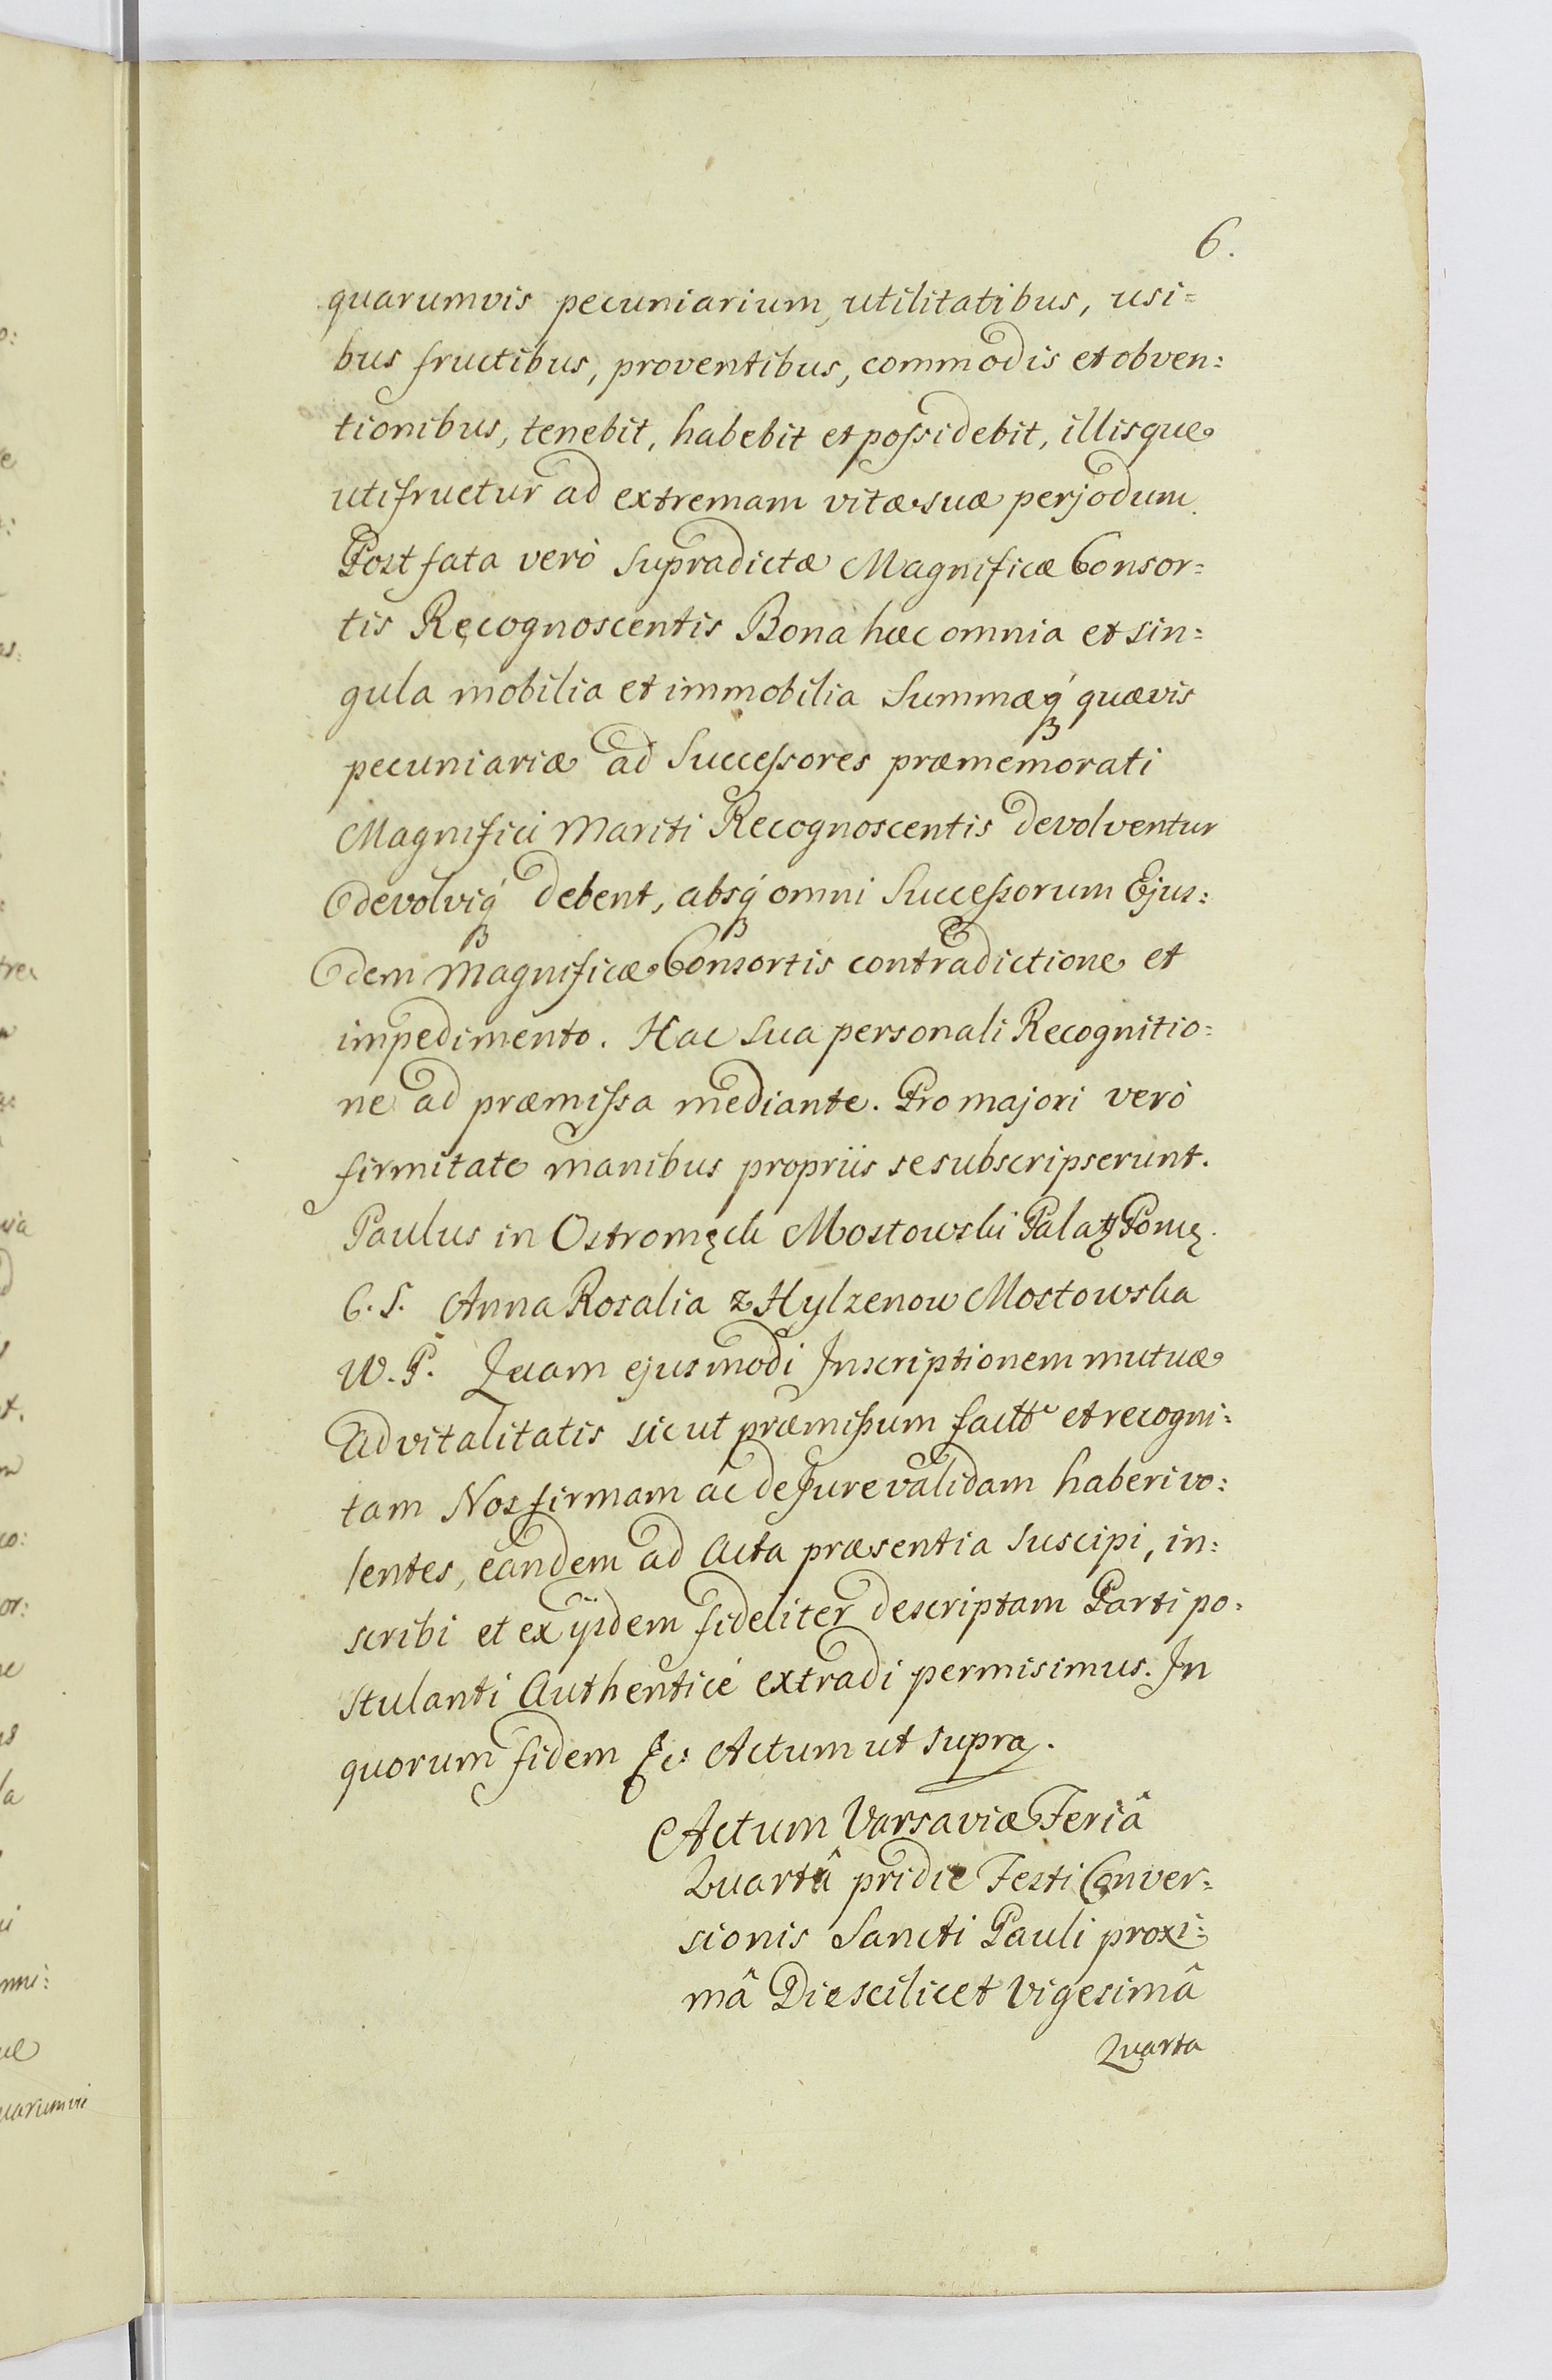 6.
quarumvis pecuniarium, utilitatibus, usi=
bus fructibus, proventibus, commodis et obven:
tionibus, tenebit, habebit et possidebit, illisque
utifruetur ad extremam vitæ suæ perjodum.
Post fata verò supradictæ Magnificæ Consor=
tis Recognoscentis Bona hæc omnia et sin=
gula mobilia et immobilia Summæq́ʒ quævis
pecuniariæ ad Successores præmemorati
Magnifici Mariti Recognoscentis devolventur
devolviq́ʒ debent, absq́ʒ omni Successorum Ejus:
dem Magnificæ Consortis contradictione et
impedimento. Hac sua personali Recognitio=
ne ad præmissa mediante. Pro majori verò
firmitate manibus propriis se subscripserunt.
Paulus in Ostromęck Mostowski Palat Pomę.
C. S. Anna Rosalia z Hylzenow Mostowska
W. P. Quam ejusmodi Inscriptionem mutuæ
advitalitatis sicut præmissum et recogni:
tam Nos firmam ac de Jure validam haberi vo:
lentes, eandem ad Acta præsentia suscipi, in:
scribi et ex ijsdem fideliter descriptam Parti po:
stulanti Authenticè extradi permisimus. In
quorum fidem &c: Actum ut supra.
Actum Varsaviæ Feriâ
Quartâ pridie Festi Conver=
sionis Sancti Pauli proxi:
mâ Die scilicet Vigesimâ
Quarta
uarumvis